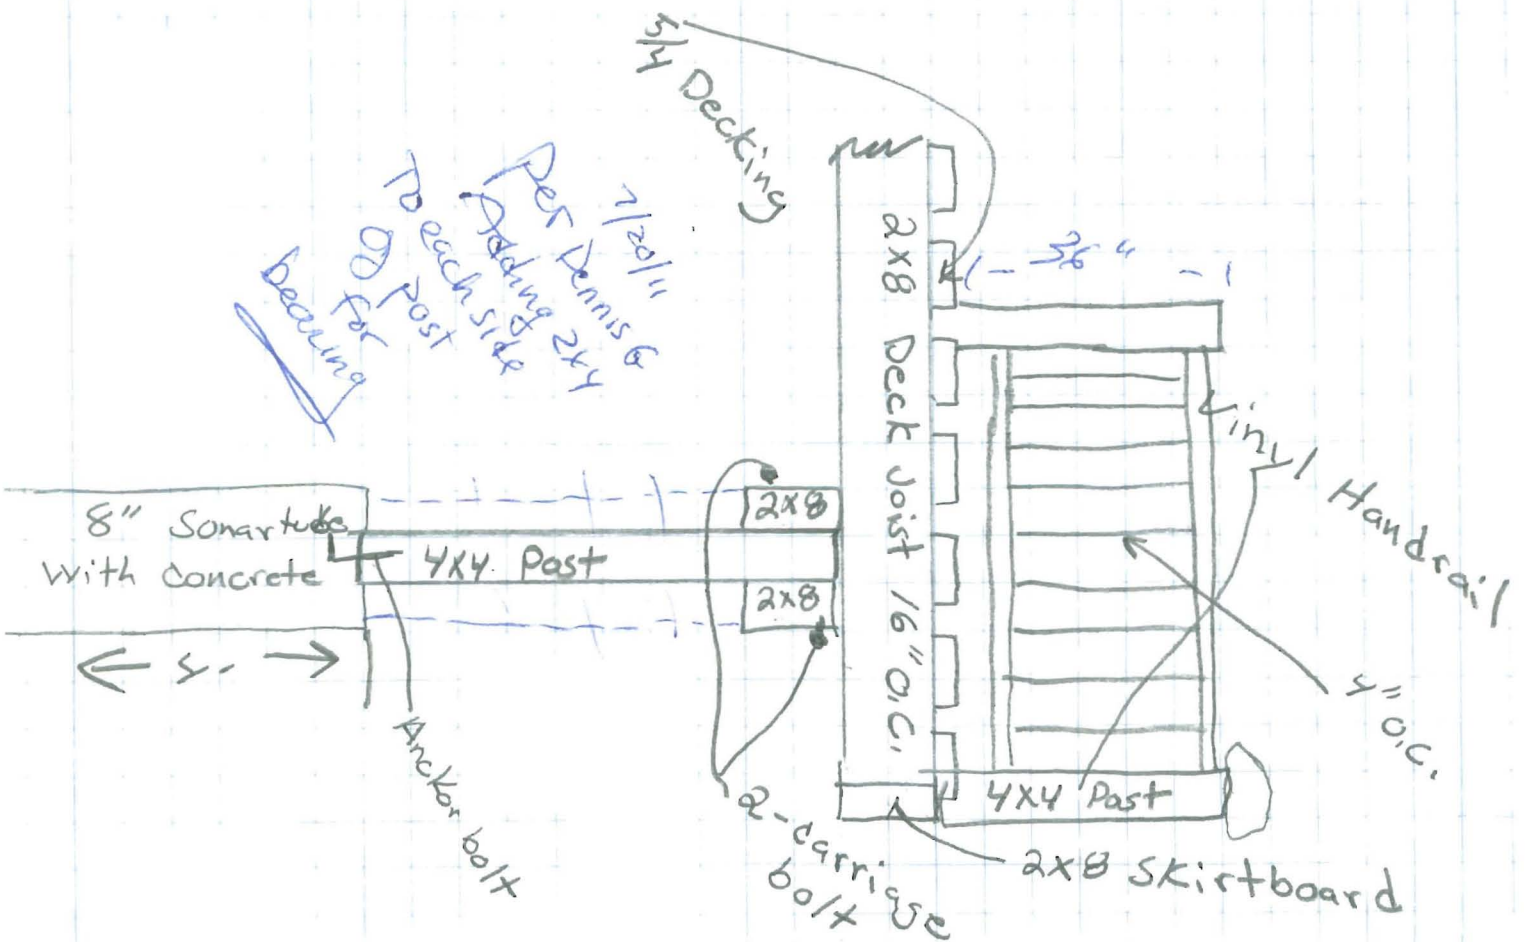 5/4 Decking
7/20/11
Per Dennis G
Adding 2x4
To each side
of post
for
bearing
2x8 Deck Joist 16" O.C.
36"
Vinyl Handrail
8" Sonartubes
With concrete
4x4 Post
2x8
2x8
4" O.C.
Anckor bolt
2-carriage
bolt
4x4 Post
2x8 Skirtboard